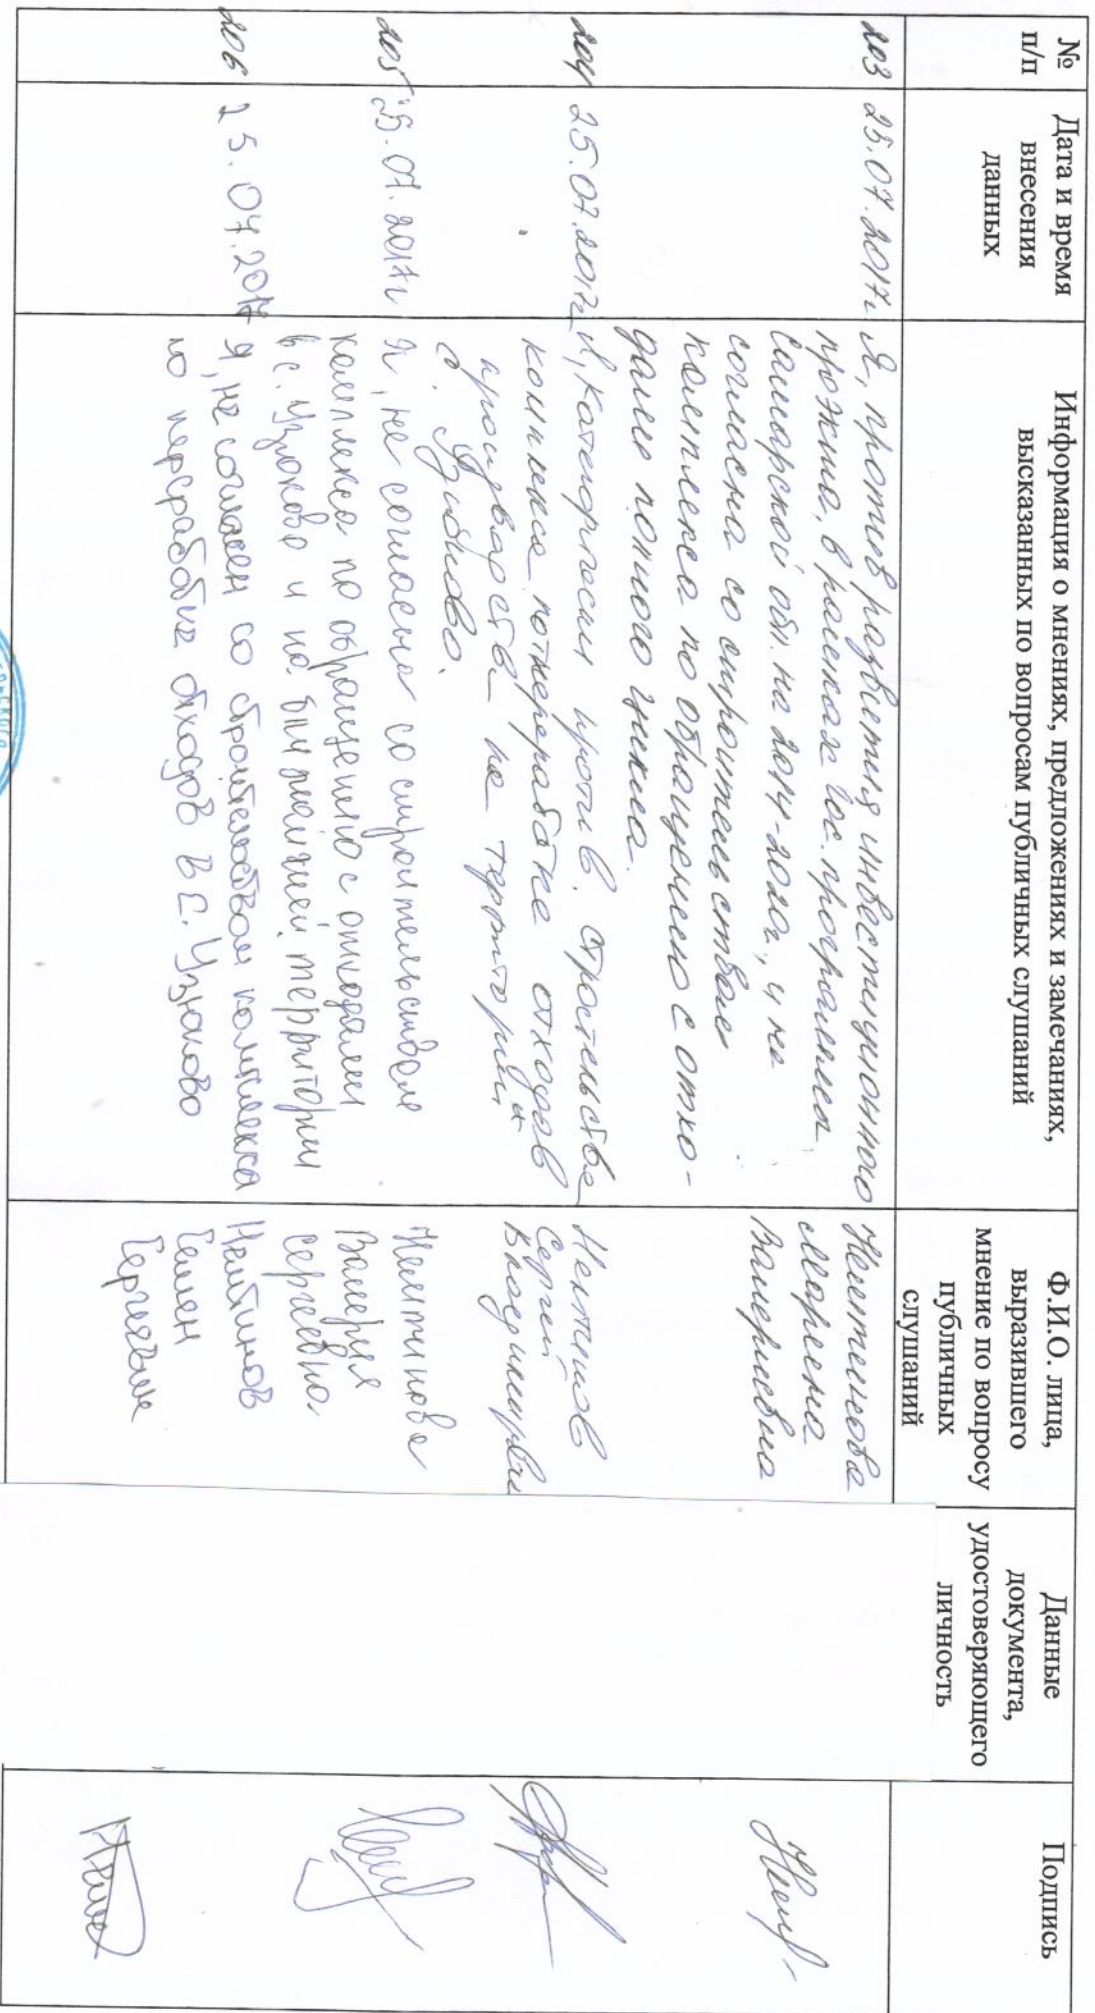 № п/п
Дата и время внесения данных
Информация о мнениях, предложениях и замечаниях, высказанных по вопросам публичных слушаний
Ф.И.О. лица, выразившего мнение по вопросу публичных слушаний
Данные документа, удостоверяющего личность
Подпись
203 25.07.2017г. Я, против развития инвестиционного
проэкта, в рамках гос. программы
Самарской обл. на 2014-2020г., и не
согласна со строительством
комплекса по обращению с отхо-
дами полного цикла.
Марина
Валериевна
204 25.07.2017г Я, категорически против. строительства
комплекса по переработке отходов
производства на территории
с. Узюково.
Сергей
Владимирович
205 25.07.2017г Я, не согласна со строительством
комплекса по обращению с отходами
в с. Узюково и на близлежащей территории
Валерия
Сергеевна
206 25.07.2017 Я, не согласен со строительством комплекса
по переработке отходов в с. Узюково
Семен
Сергеевич